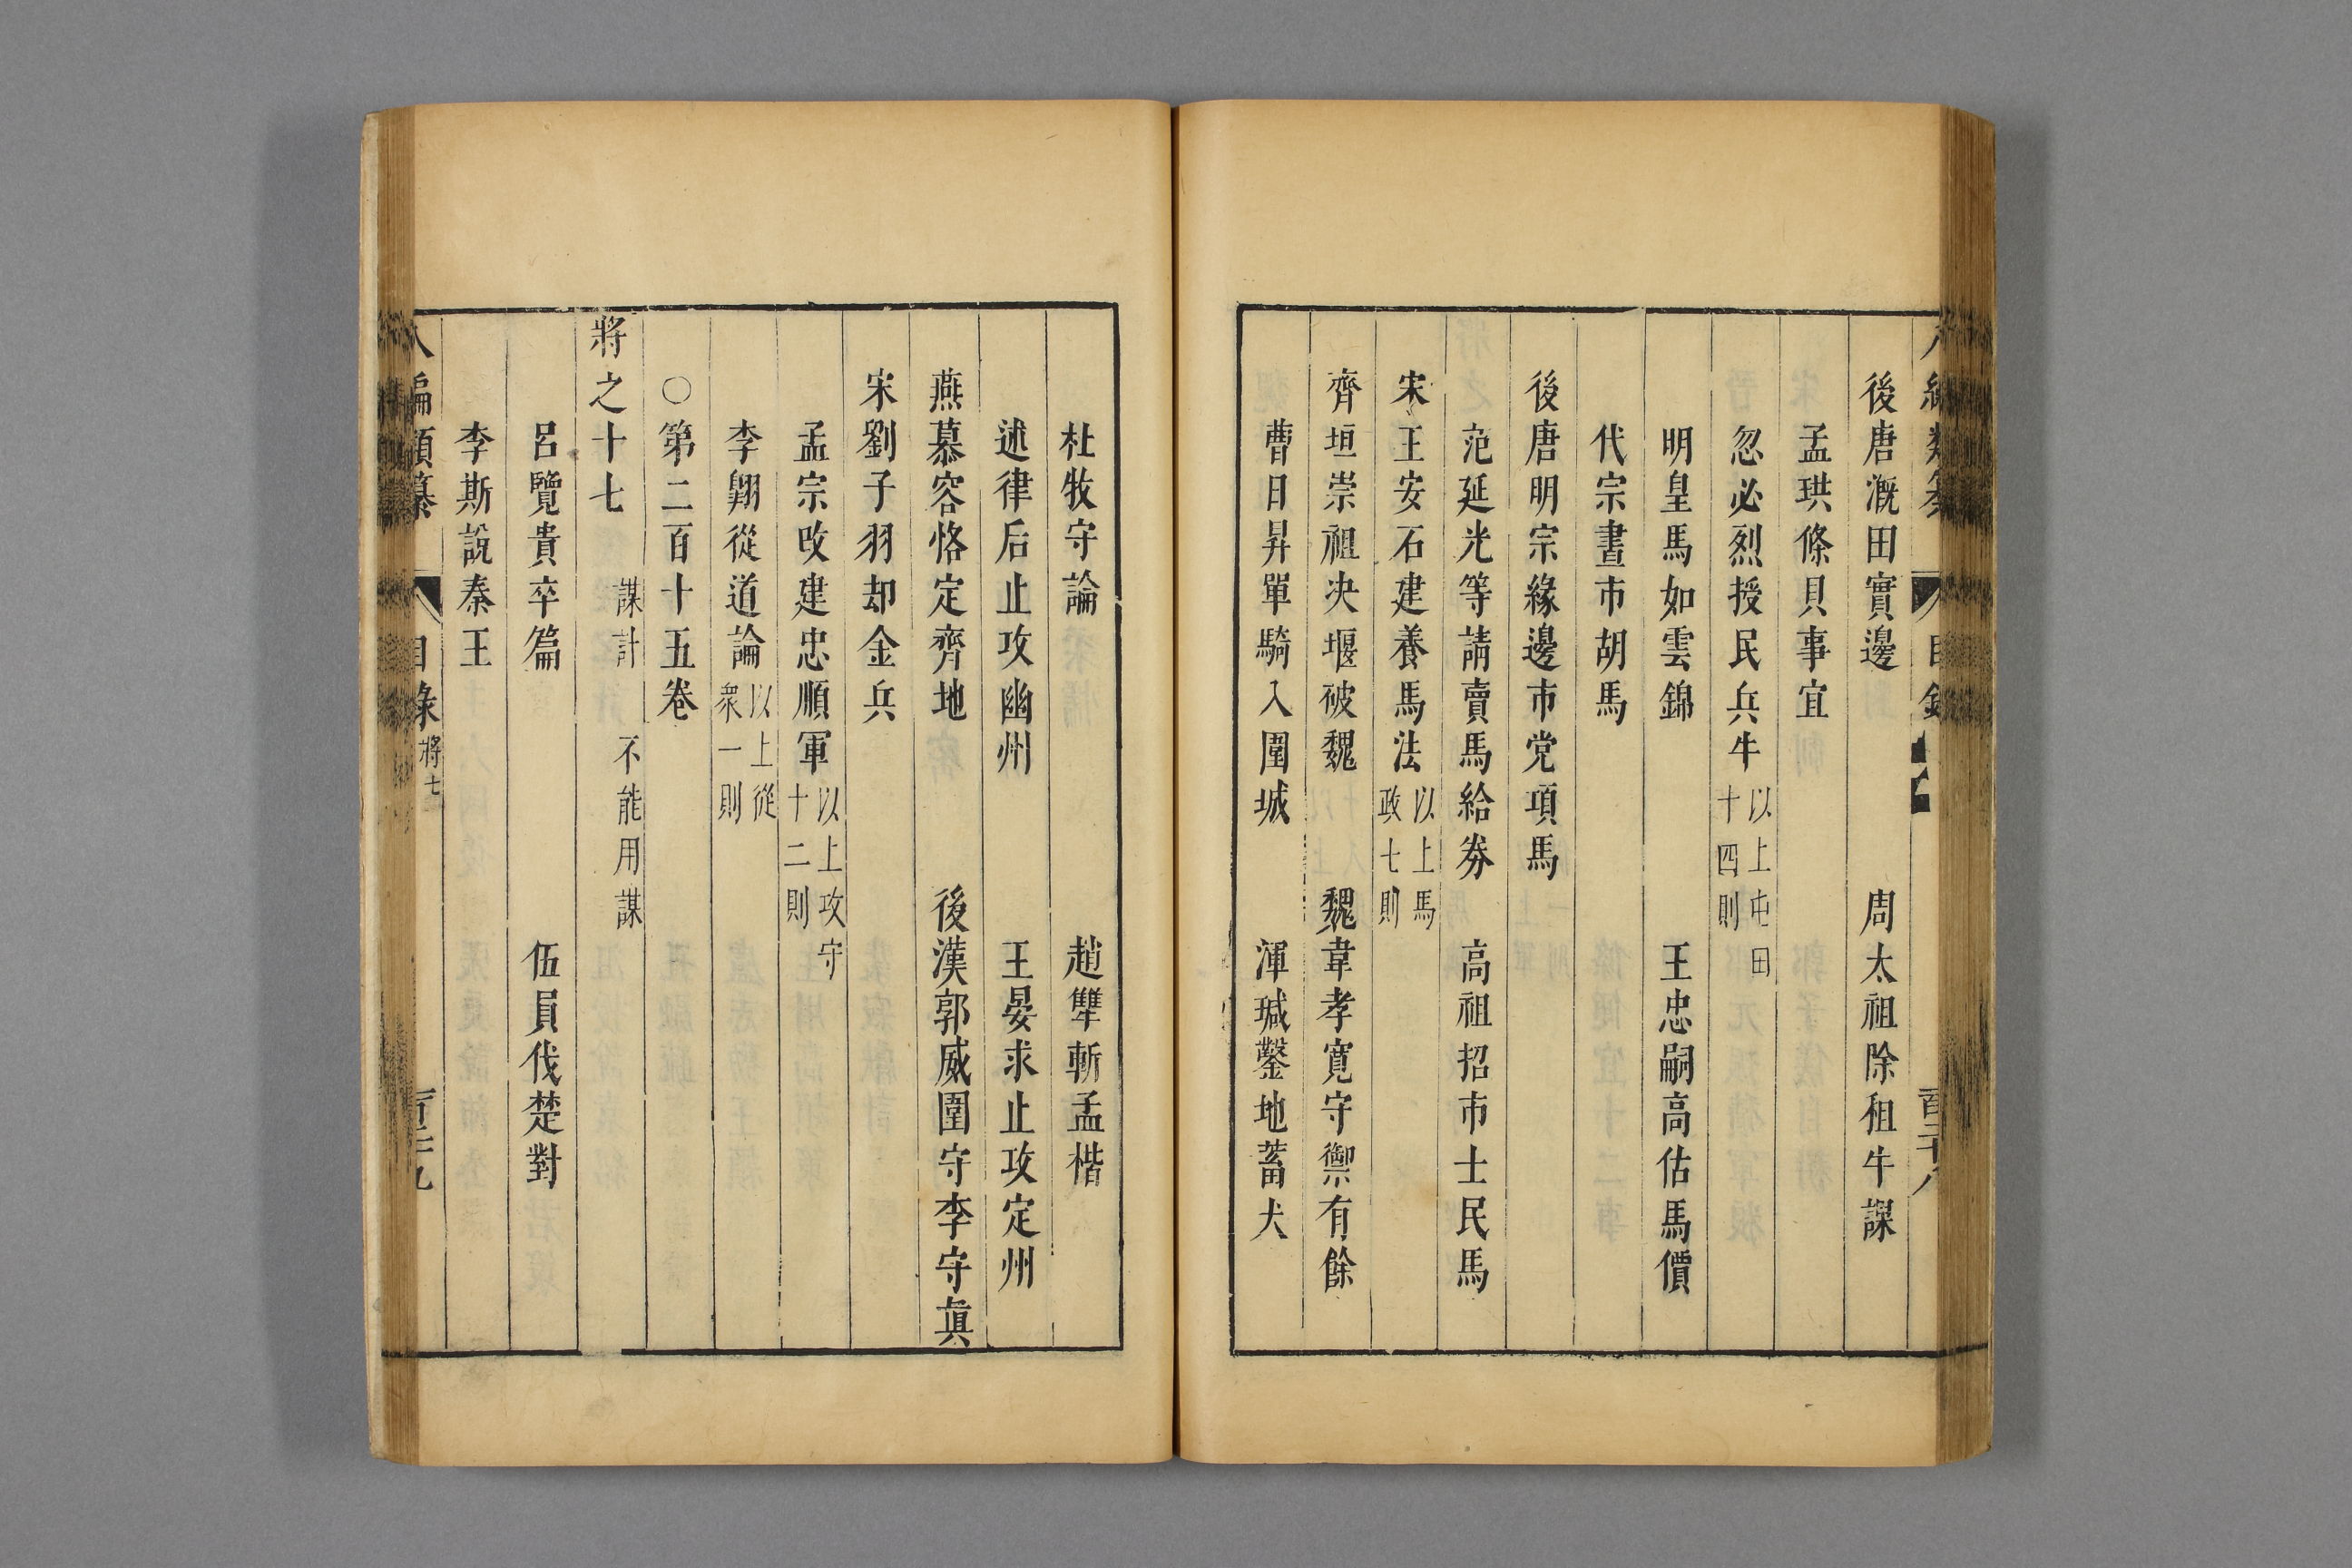 後唐溉田實邊　周太祖除租牛課
孟珙條具事宜
忽必烈授民兵牛以上屯田十四則
明皇馬如雲錦　王忠嗣高估馬價
代宗晝市胡馬
後唐明宗緣邊市党項馬
范延光等請賣馬給券　高祖招市士民馬
宋王安石建養馬法以上馬政七則
齊垣崇祖决堰破魏　魏韋孝寬守禦有餘
曹日昇單騎入圍城　渾瑊鑿地蓄犬
杜牧守論　趙犨斬孟楷
述律后止攻幽州　王晏求止攻定州
燕慕容恪定齊地　後漢郭威圍守李守真
宋劉子羽却金兵
孟宗政建忠順軍以上攻守十二則
李翶從道論以上從衆一則
○第二百十五卷
將之十七　謀計　不能用謀
呂覽貴卒篇　伍員伐楚對
李斯說秦王
八編類纂　目錄　將七